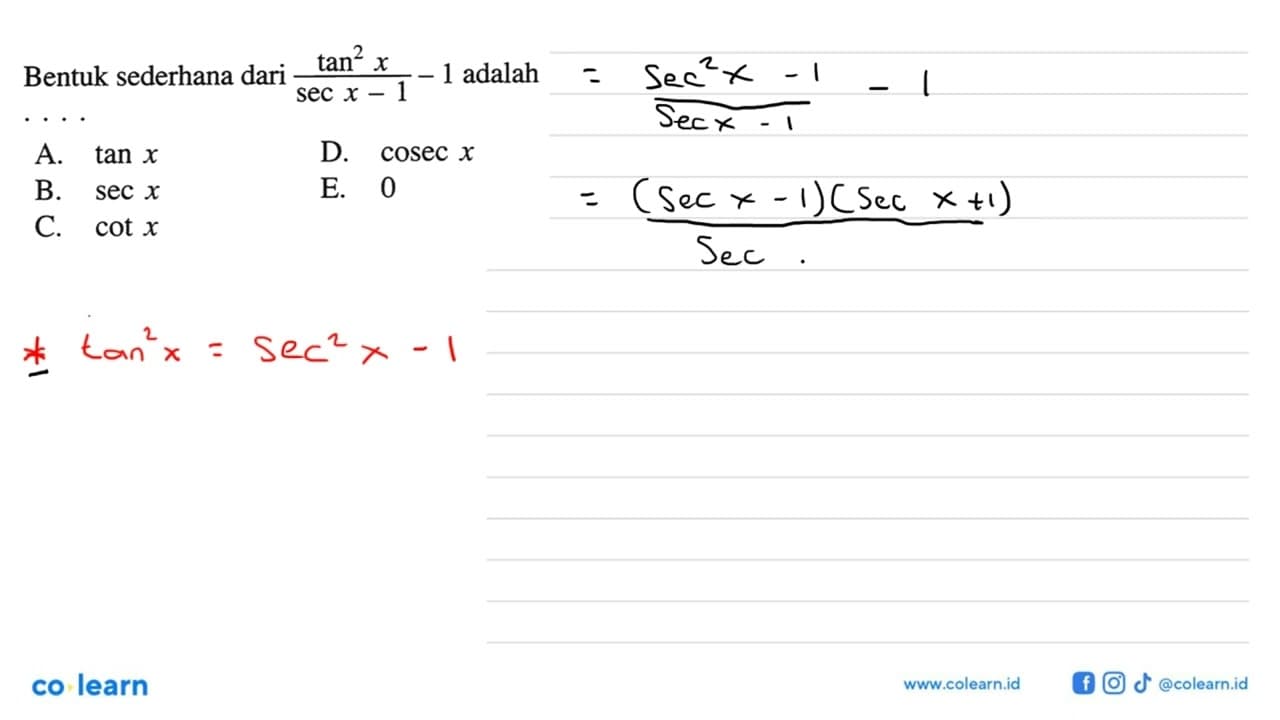 Bentuk sederhana dari tan² x / (sec x – 1) – 1 adalah
. . . .
A. tan x
B. sec x
C. cot x
D. cosec x
E. 0
= sec² x - 1 / sec x - 1 - 1
= (sec x - 1)(sec x + 1) / sec .
* tan² x = sec² x - 1
co learn
www.colearn.id
@colearn.id